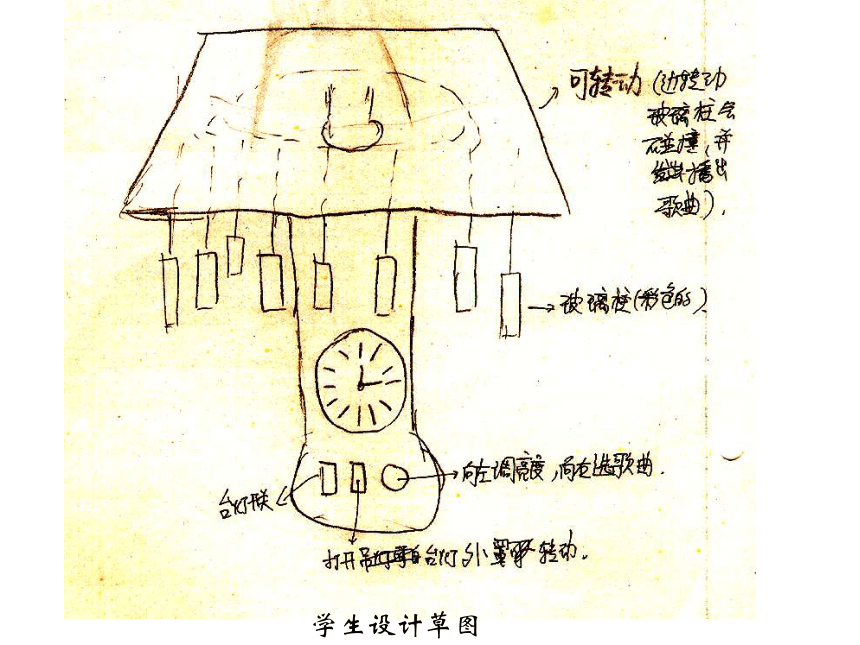 可转动（边转动
玻璃柱会
碰撞，并
播出
歌曲）．
玻璃柱（彩色的）
向左调亮度，向右选歌曲．
台灯开关
打开 台灯外罩 转动．
学生设计草图